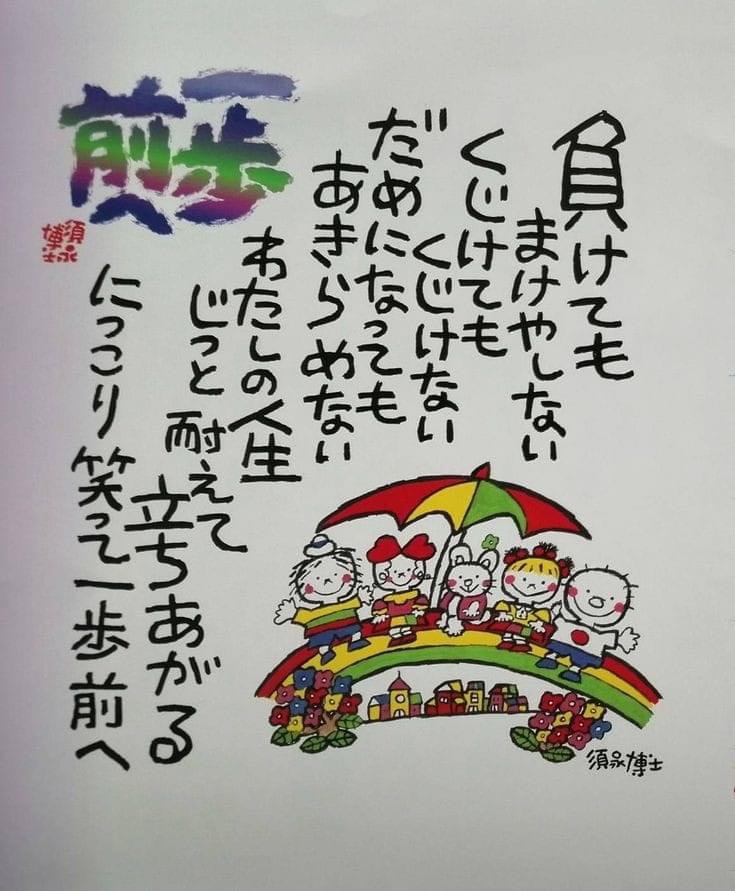 負けても
まけやしない
くじけても
くじけない
だめになっても
あきらめない
わたしの人生
じっと耐えて
立ちあがる
にっこり笑って一歩前へ
一歩
前へ
須永
博士
須永博士